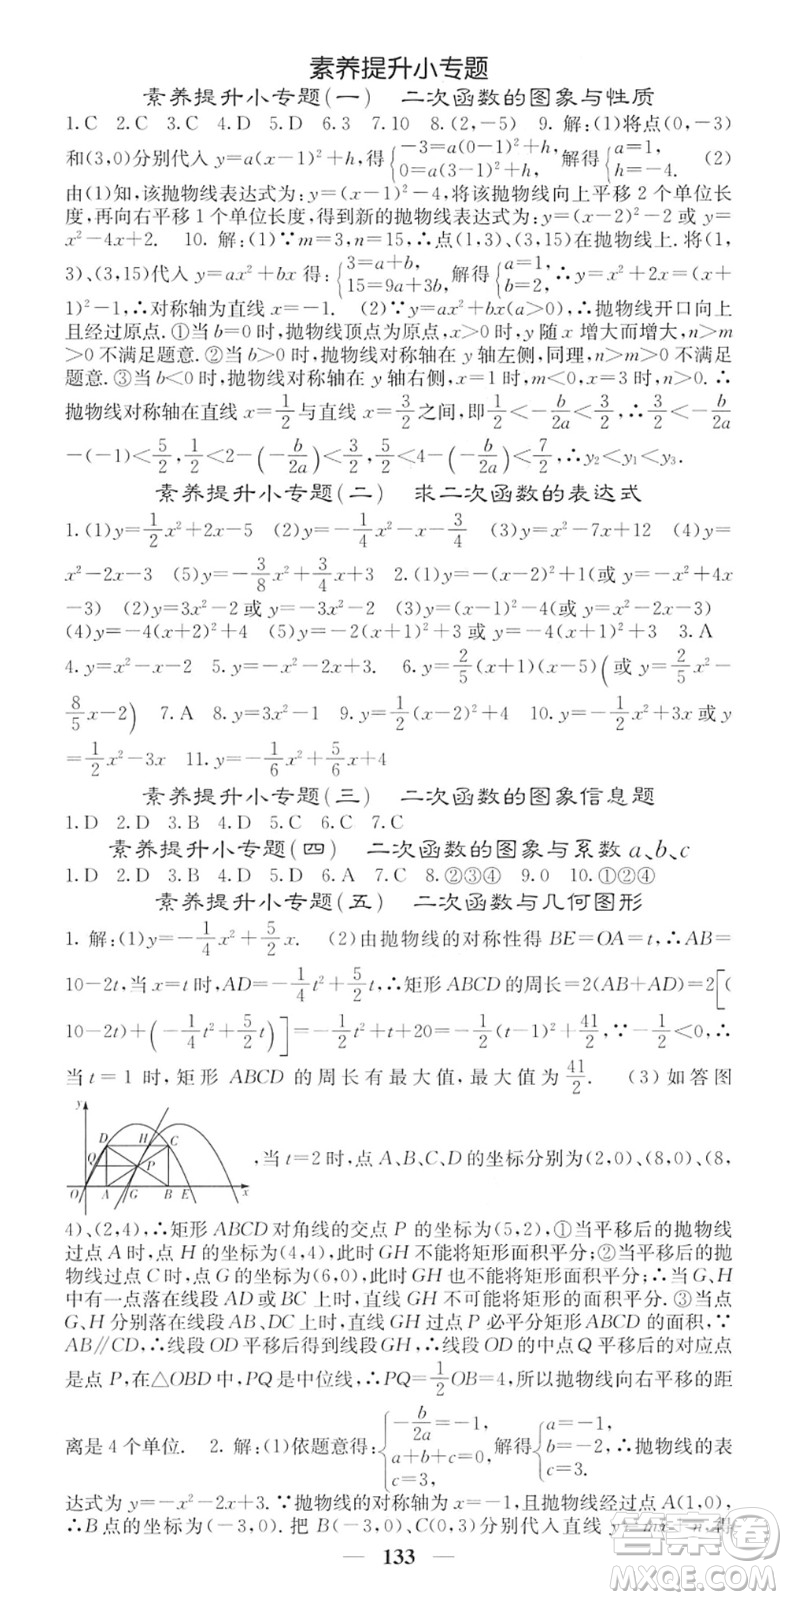 素养提升小专题
素养提升小专题(一)　二次函数的图象与性质
1.C　2.C　3.C　4.D　5.D　6.3　7.10　8.(2,−5)　9. 解:(1)将点(0,−3)
和(3,0)分别代入 y=a(x−1)²+h,得{−3=a(0−1)²+h, 0=a(3−1)²+h, 解得{a=1, h=−4.　(2)
由(1)知,该抛物线表达式为:y=(x−1)²−4,将该抛物线向上平移 2 个单位长
度,再向右平移 1 个单位长度,得到新的抛物线表达式为:y=(x−2)²−2 或 y=
x²−4x+2.　10. 解:(1)∵m=3,n=15,∴点(1,3)、(3,15)在抛物线上.将(1,
3)、(3,15)代入 y=ax²+bx 得:{3=a+b, 15=9a+3b, 解得{a=1, b=2, ∴y=x²+2x=(x+
1)²−1,∴对称轴为直线 x=−1.　(2)∵y=ax²+bx(a>0),∴抛物线开口向上
且经过原点.①当 b=0 时,抛物线顶点为原点,x>0 时,y 随 x 增大而增大,n>m
>0 不满足题意.②当 b>0 时,抛物线对称轴在 y 轴左侧,同理,n>m>0 不满
足题意.③当 b<0 时,抛物线对称轴在 y 轴右侧,x=1 时,m<0,x=3 时,n>0.∴
抛物线对称轴在直线 x=1/2 与直线 x=3/2 之间,即 1/2<−b/2a<3/2,∴1/2<−b/2a
−(−1)<5/2,1/2<2−(−b/2a)<3/2,5/2<4−(−b/2a)<7/2,∴y₂<y₁<y₃.
素养提升小专题(二)　求二次函数的表达式
1.(1)y=1/2x²+2x−5　(2)y=−1/4x²−x−3/4　(3)y=x²−7x+12　(4)y=
x²−2x−3　(5)y=−3/8x²+3/4x+3　2.(1)y=−(x−2)²+1(或 y=−x²+4x
−3)　(2)y=3x²−2 或 y=−3x²−2　(3)y=(x−1)²−4(或 y=x²−2x−3)
(4)y=−4(x+2)²+4　(5)y=−2(x+1)²+3 或 y=−2(x−1)²+3　3.A
4.y=x²−x−2　5.y=−x²−2x+3.　6.y=2/5(x+1)(x−5)(或 y=2/5x²−
8/5x−2)　7.A　8.y=3x²−1　9.y=1/2(x−2)²+4　10.y=−1/2x²+3x 或 y
=1/2x²−3x　11.y=−1/6x²+5/6x+4
素养提升小专题(三)　二次函数的图象信息题
1.D　2.D　3.B　4.D　5.C　6.C　7.C
素养提升小专题(四)　二次函数的图象与系数 a、b、c
1.D　2.D　3.B　4.D　5.D　6.A　7.C　8.②③④　9.0　10.①②④
素养提升小专题(五)　二次函数与几何图形
1. 解:(1)y=−1/4x²+5/2x.　(2)由抛物线的对称性得 BE=OA=t,∴AB=
10−2t,当 x=t 时,AD=−1/4t²+5/2t,∴矩形 ABCD 的周长=2(AB+AD)=2[(
10−2t)+(−1/4t²+5/2t)]=−1/2t²+t+20=−1/2(t−1)²+41/2,∵−1/2<0,∴
当 t=1 时,矩形 ABCD 的周长有最大值,最大值为41/2.　(3)如答图
y D H C Q P O A G B E x
,当 t=2 时,点 A、B、C、D 的坐标分别为(2,0)、(8,0)、(8,
4)、(2,4),∴矩形 ABCD 对角线的交点 P 的坐标为(5,2),①当平移后的抛物线
过点 A 时,点 H 的坐标为(4,4),此时 GH 不能将矩形面积平分;②当平移后的抛
物线过点 C 时,点 G 的坐标为(6,0),此时 GH 也不能将矩形面积平分;∴当 G、H
中有一点落在线段 AD 或 BC 上时,直线 GH 不可能将矩形的面积平分.③当点
G、H 分别落在线段 AB、DC 上时,直线 GH 过点 P 必平分矩形 ABCD 的面积,∵
AB∥CD,∴线段 OD 平移后得到线段 GH,∴线段 OD 的中点 Q 平移后的对应点
是点 P,在△OBD 中,PQ 是中位线,∴PQ=1/2OB=4,所以抛物线向右平移的距
离是 4 个单位.　2. 解:(1)依题意得:{−b/2a=−1, a+b+c=0, c=3, 解得{a=−1, b=−2, c=3, ∴抛物线的表
达式为 y=−x²−2x+3.∵抛物线的对称轴为 x=−1,且抛物线经过点 A(1,0),
∴B 点的坐标为(−3,0).把 B(−3,0)、C(0,3)分别代入直线 y=mx+n,得
133
答案圈
MXQE.COM